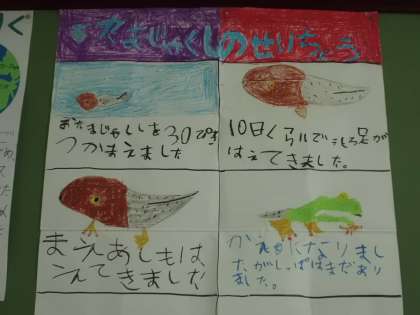 おたまじゃくしのせいちょう
おたまじゃくしを30ぴき
つかまえました
10日くらいでうしろ足が
はえてきました。
まえあしもは
えてきました
かえるになりまし
たがしっぽはまだあり
ました。